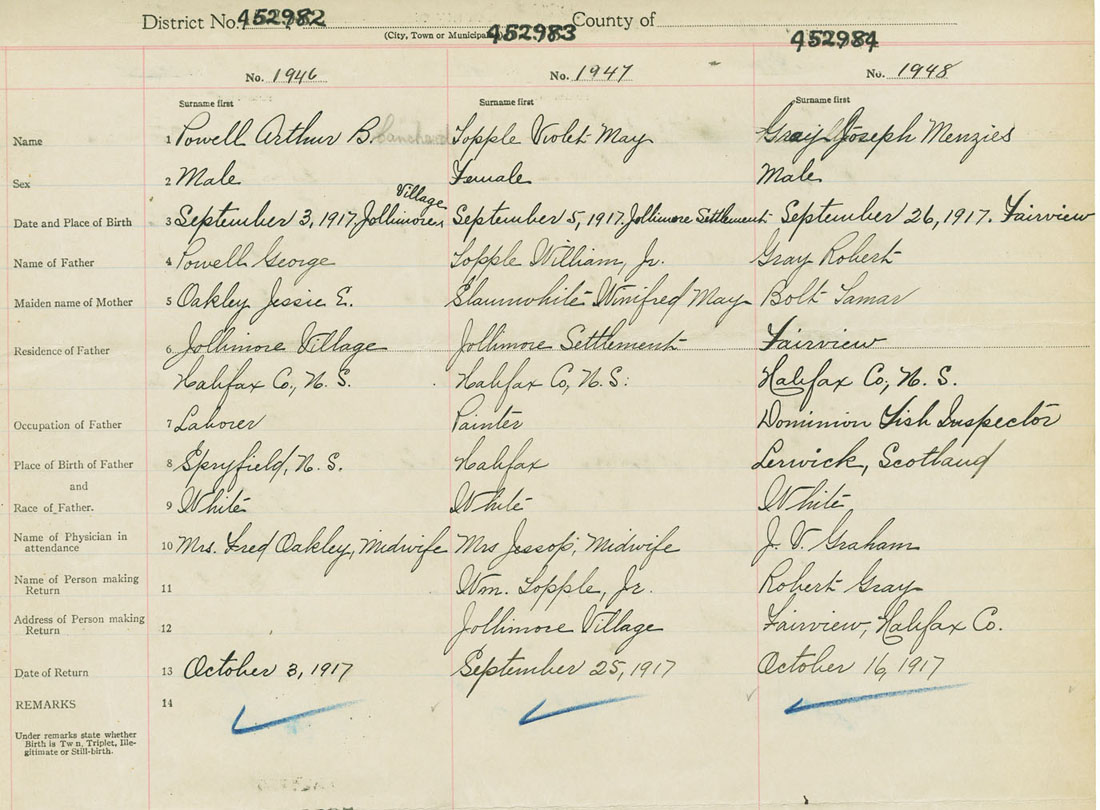 District No. 452982 County of
(City, Town or Municipa 452983 452984
No. 1946 No. 1947 No. 1948
Surname first Surname first Surname first
Name 1 Powell Arthur B. Topple Violet May Gray Joseph Menzies
Sex 2 Male Female Male
Village
Date and Place of Birth 3 September 3, 1917 Jollimore September 5, 1917 Jollimore Settlement September 26, 1917. Fairview
Name of Father 4 Powell George Topple William, Jr. Gray Robert
Maiden name of Mother 5 Oakley Jessie E. Slaunwhite Winifred May Bolt Tamar
Residence of Father 6 Jollimore Village Jollimore Settlement Fairview
Halifax Co, N. S. Halifax Co, N. S. Halifax Co, N. S.
Occupation of Father 7 Laborer Painter Dominion Fish Inspector
Place of Birth of Father 8 Spryfield, N. S. Halifax Lerwick, Scotland
and
Race of Father. 9 White White White
Name of Physician in
attendance 10 Mrs. Fred Oakley, Midwife Mrs Jessop, Midwife J. V. Graham
Name of Person making
Return 11 Wm. Topple, Jr. Robert Gray
Address of Person making
Return 12 Jollimore Village Fairview, Halifax Co.
Date of Return 13 October 3, 1917 September 25, 1917 October 16, 1917
REMARKS 14
Under remarks state whether
Birth is Tw n, Triplet, Ille-
gitimate or Still-birth.